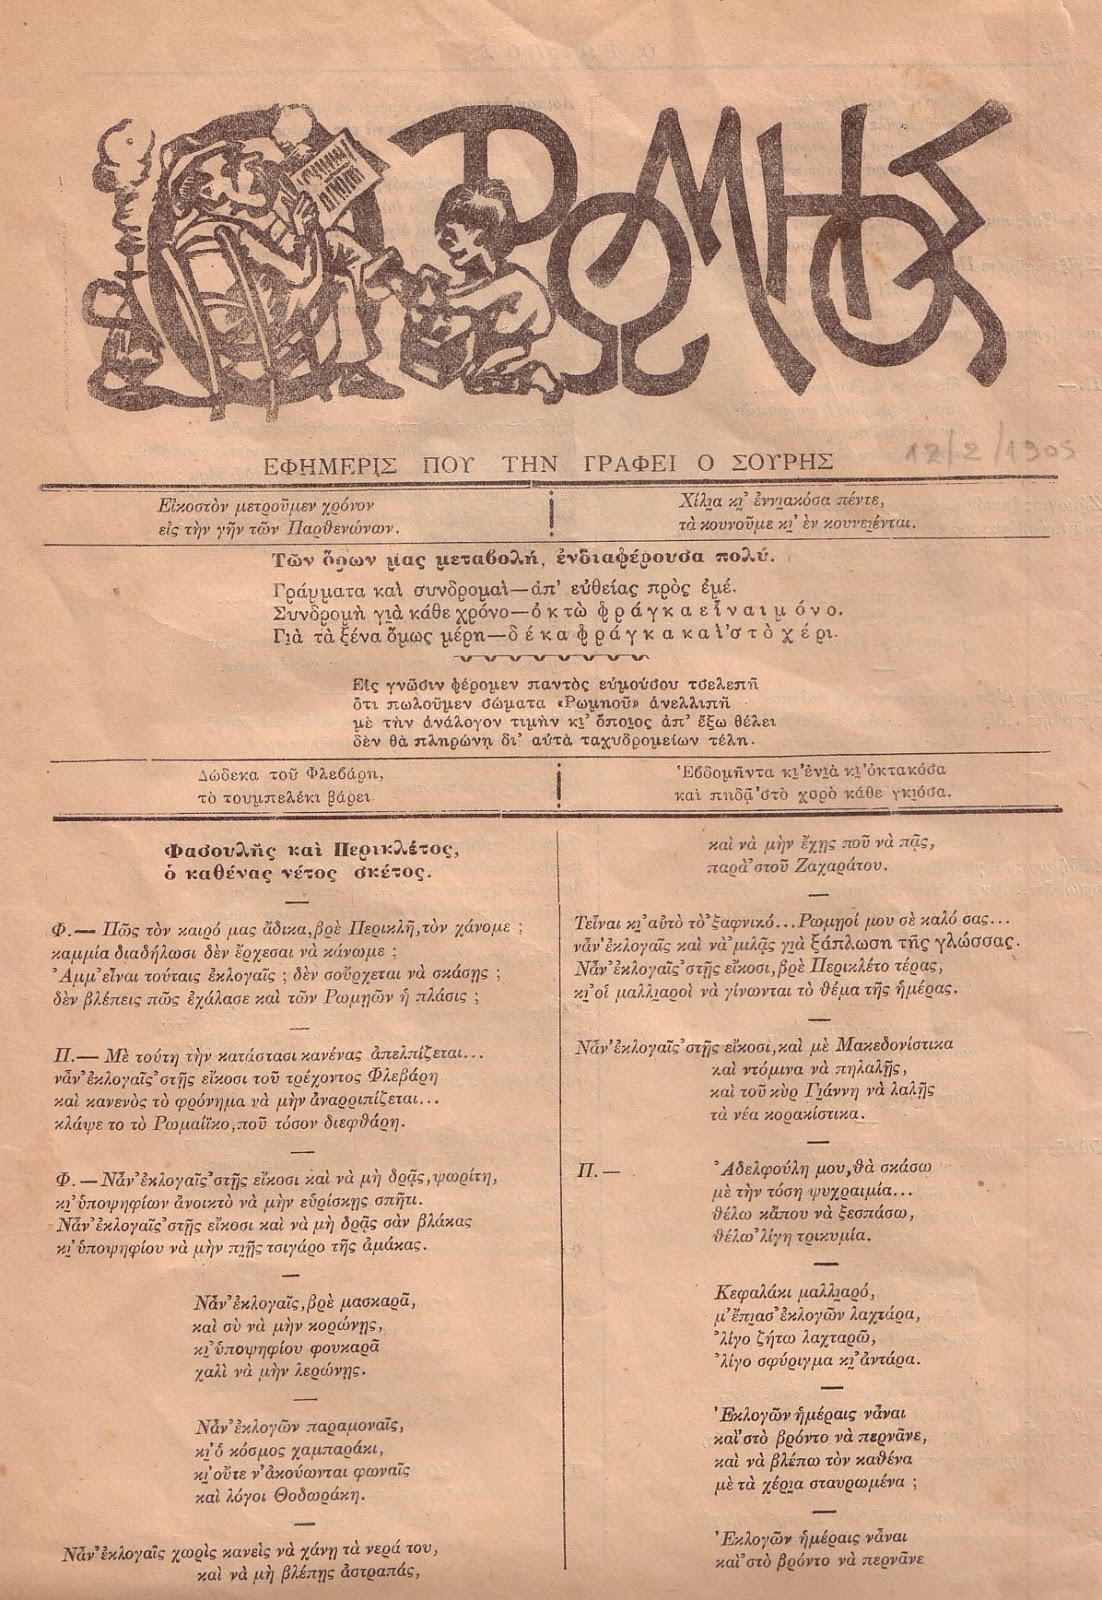 Ο ΡΩΜΗΟΣ
12/2/1905
ΕΦΗΜΕΡΙΣ ΠΟΥ ΤΗΝ ΓΡΑΦΕΙ Ο ΣΟΥΡΗΣ
Εἰκοστὸν μετροῦμεν χρόνον
εἰς τὴν γῆν τῶν Παρθενώνων.
Χίλι̬α κι̬’ ἐννι̬ακόσα πέντε,
τὰ κουνοῦμε κι̬’ ἐν κουνει̬ένται.
Τῶν ὅρων μας μεταβολή, ἐνδιαφέρουσα πολύ.
Γράμματα καὶ συνδρομαὶ—ἀπ’ εὐθείας πρὸς ἐμέ.
Συνδρομὴ γι̬ὰ κάθε χρόνο—ὀκτὼ φράγκα εἶναι μόνο.
Γι̬ὰ τὰ ξένα ὅμως μέρη—δέκα φράγκα καὶ ’στὸ χέρι.
Εἰς γνῶσιν φέρομεν παντὸς εὐμούσου τσελεπῆ
ὅτι πωλοῦμεν σώματα «Ρωμηοῦ» ἀνελλιπῆ
μὲ τὴν ἀνάλογον τιμὴν κι̬’ ὅποι̬ος ἀπ’ ἔξω θέλει
δὲν θὰ πληρώνῃ δι’ αὐτὰ ταχυδρομείων τέλη.
Δώδεκα τοῦ Φλεβάρη,
τὸ τουμπελέκι βάρει.
Ἑβδομῆντα κι̬’ ἐνιὰ κι̬’ ὀκτακόσα
καὶ πηδᾷ ’στὸ χορὸ κάθε γκιόσα.
Φασουλῆς καὶ Περικλέτος,
ὁ καθένας νέτος σκέτος.
Φ.— Πῶς τὸν καιρό μας ἄδικα, βρὲ Περικλῆ, τὸν χάνομε ;
καμμία διαδήλωσι δὲν ἔρχεσαι νὰ κάνωμε ;
Ἀμμ’ εἶναι τούταις ἐκλογαῖς ; δὲν σοὔρχεται νὰ σκάσῃς ;
δὲν βλέπεις πῶς ἐχάλασε καὶ τῶν Ρωμῃῶν ἡ πλάσις ;
Π.— Μὲ τούτη τὴν κατάστασι κανένας ἀπελπίζεται...
νἆν’ ἐκλογαῖς ’στῇς εἴκοσι τοῦ τρέχοντος Φλεβάρη
καὶ κανενὸς τὸ φρόνημα νὰ μὴν ἀναρριπίζεται...
κλάψε το τὸ Ρωμαίϊκο, ποῦ τόσον διεφθάρη.
Φ.— Νἆν’ ἐκλογαῖς ’στῇς εἴκοσι καὶ νὰ μὴ δρᾷς, ψωρίτη,
κι̬’ ὑποψηφίων ἀνοικτὸ νὰ μὴν εὑρίσκῃς σπῆτι.
Νἆν’ ἐκλογαῖς ’στῇς εἴκοσι καὶ νὰ μὴ δρᾷς σὰν βλάκας
κι̬’ ὑποψηφίου νὰ μὴν πι̬ῇς τσιγάρο τῆς ἀμάκας.
Νἆν’ ἐκλογαῖς, βρὲ μασκαρᾶ,
καὶ σὺ νὰ μὴν κορώνῃς,
κι̬’ ὑποψηφίου φουκαρᾶ
χαλὶ νὰ μὴν λερώνῃς.
Νἆν’ ἐκλογῶν παραμοναῖς,
κι̬’ ὁ κόσμος χαμπαράκι,
κι̬’ οὔτε ν’ ἀκούωνται φωναῖς
καὶ λόγοι Θοδωράκη.
Νἆν’ ἐκλογαῖς χωρὶς κανεὶς νὰ χάνῃ τὰ νερά του,
καὶ νὰ μὴ βλέπῃς ἀστραπάς,
καὶ νὰ μὴν ἔχῃς ποῦ νὰ πᾷς,
παρὰ ’στοῦ Ζαχαράτου.
Τεἶναι κι̬’ αὐτὸ τὸ ’ξαφνικό... Ρωμῃοί μου σὲ καλό σας...
νἆν’ ἐκλογαῖς καὶ νὰ μιλᾷς γι̬ὰ ξάπλωση τῆς γλώσσας.
Νἆν’ ἐκλογαῖς ’στῇς εἴκοσι, βρὲ Περικλέτο τέρας,
κι̬’ οἱ μαλλι̬αροὶ νὰ γίνωνται τὸ θέμα τῆς ἡμέρας.
Νἆν’ ἐκλογαῖς ’στῇς εἴκοσι, καὶ μὲ Μακεδονίστικα
καὶ ντόμινα νὰ πηλαλῇς,
καὶ τοῦ κὺρ Γι̬άννη νὰ λαλῇς
τὰ νέα κορακίστικα.
Π.— Ἀδελφούλη μου, θὰ σκάσω
μὲ τὴν τόση ψυχραιμία...
θέλω κἄπου νὰ ξεσπάσω,
θέλω ’λίγη τρικυμία.
Κεφαλάκι μαλλι̬αρό,
μ’ ἔπι̬ασ’ ἐκλογῶν λαχτάρα,
’λίγο ζήτω λαχταρῶ,
’λίγο σφύριγμα κι̬’ ἀντάρα.
Ἐκλογῶν ἡμέραις νἆναι
καὶ ’στὸ βρόντο νὰ περνᾶνε,
καὶ νὰ βλέπω τὸν καθένα
μὲ τὰ χέρι̬α σταυρωμένα ;
Ἐκλογῶν ἡμέραις νἆναι
καὶ ’στὸ βρόντο νὰ περνᾶνε